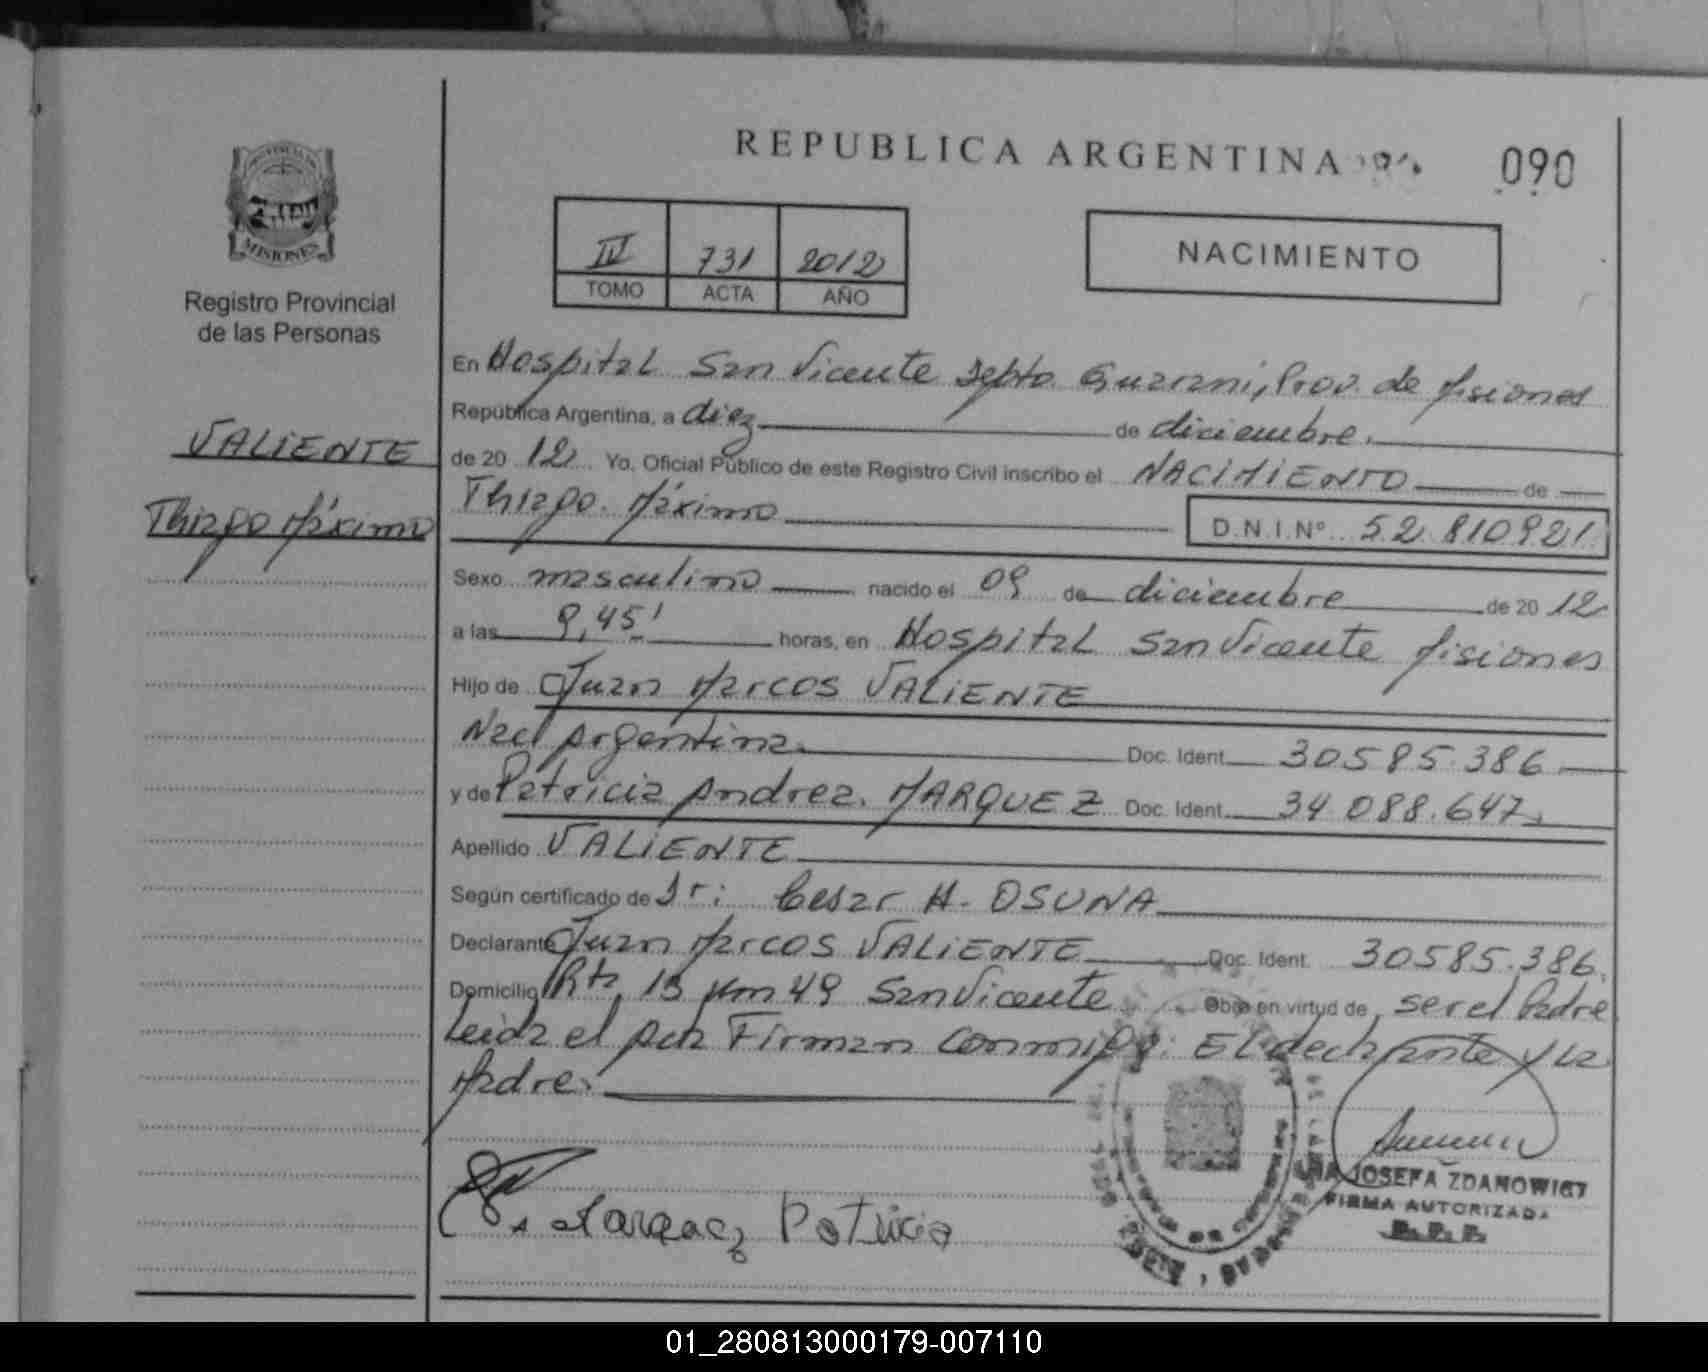 REPUBLICA ARGENTINA
090
PROVINCIA DE
MISIONES
Registro Provincial
de las Personas
IV 731 2012
TOMO ACTA AÑO
NACIMIENTO
VALIENTE
Thiago Máximo
En Hospital San Vicente Depto Guarani, Prov. de Misiones
República Argentina, a diez de diciembre.
de 20 12 Yo, Oficial Público de este Registro Civil inscribo el NACIMIENTO de
Thiago. Máximo D.N.I.Nº 52.810921
Sexo masculino nacido el 09 de diciembre de 20 12
a las 9,45' horas, en Hospital San Vicente Misiones
Hijo de Juan Marcos VALIENTE
Nac Argentina. Doc. Ident. 30585.386
y de Patricia Andrea. MARQUEZ Doc. Ident. 34 088.647.
Apellido VALIENTE
Según certificado de Dr: Cesar H. OSUNA
Declarante Juan Marcos VALIENTE Doc. Ident. 30585.386.
Domicilio Rta 13 Km 49 San Vicente Obra en virtud de ser el Padre
Leida el acta Firman conmigo: El declarante y la
Madre.
Marquez Patricia
JOSEFA ZDANOWICZ
FIRMA AUTORIZADA
R. P. P.
01_280813000179-007110